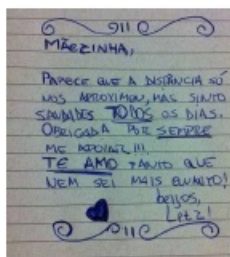 Mãezinha,
Parece que a distância só
nos aproximou, mas sinto
saudades TODOS os dias.
Obrigada por SEMPRE
me apoiar!!!
TE AMO tanto que
nem sei mais quanto!
beijos,